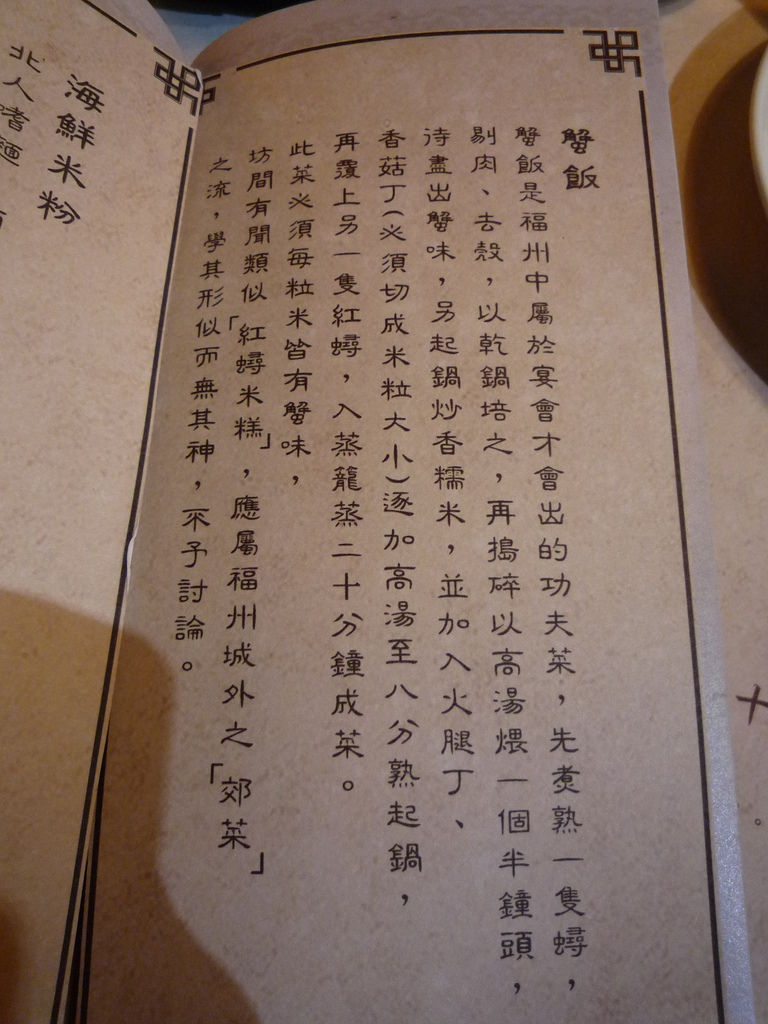 蟹飯
蟹飯是福州中屬於宴會才會出的功夫菜，先煮熟一隻蟳，
剔肉、去殼，以乾鍋培之，再搗碎以高湯煨一個半鐘頭，
待盡出蟹味，另起鍋炒香糯米，並加入火腿丁、
香菇丁(必須切成米粒大小)逐加高湯至八分熟起鍋，
再覆上另一隻紅蟳，入蒸籠蒸二十分鐘成菜。
此菜必須每粒米皆有蟹味，
坊間有聞類似「紅蟳米糕」，應屬福州城外之「郊菜」
之流，學其形似而無其神，不予討論。
海鮮米粉
北人嗜麵